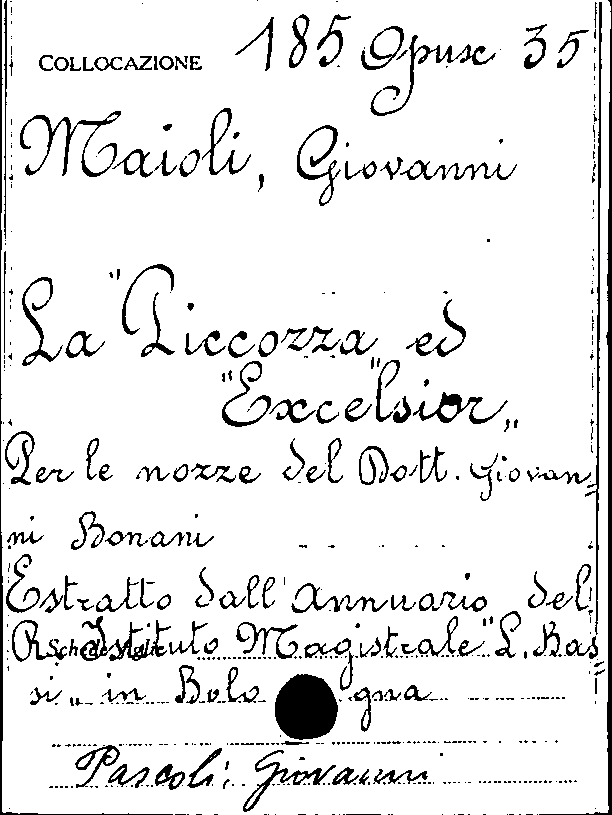 COLLOCAZIONE 185 Opusc 35
Maioli, Giovanni
La "Piccozza" ed
"Excelsior„
Per le nozze del Dott. Giovan=
ni Bonani
Estratto dall'Annuario del
R. Istituto Magistrale "L. Bas=
si„ in Bologna
Pascoli, Giovanni